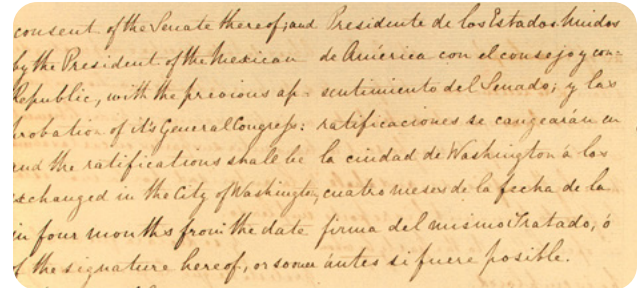 consent of the Senate thereof; and
by the President of the Mexican
Republic, with the previous ap-
probation of its General Congress:
and the ratifications shall be
exchanged in the City of Washington,
in four months from the date
of the signature hereof, or sooner
Presidente de los Estados Unidos
de América con el consejo y con-
sentimiento del Senado; y las
ratificaciones se cangearán en
la ciudad de Washington á los
cuatro meses de la fecha de la
firma del mismo Tratado, ó
ántes si fuere posible.